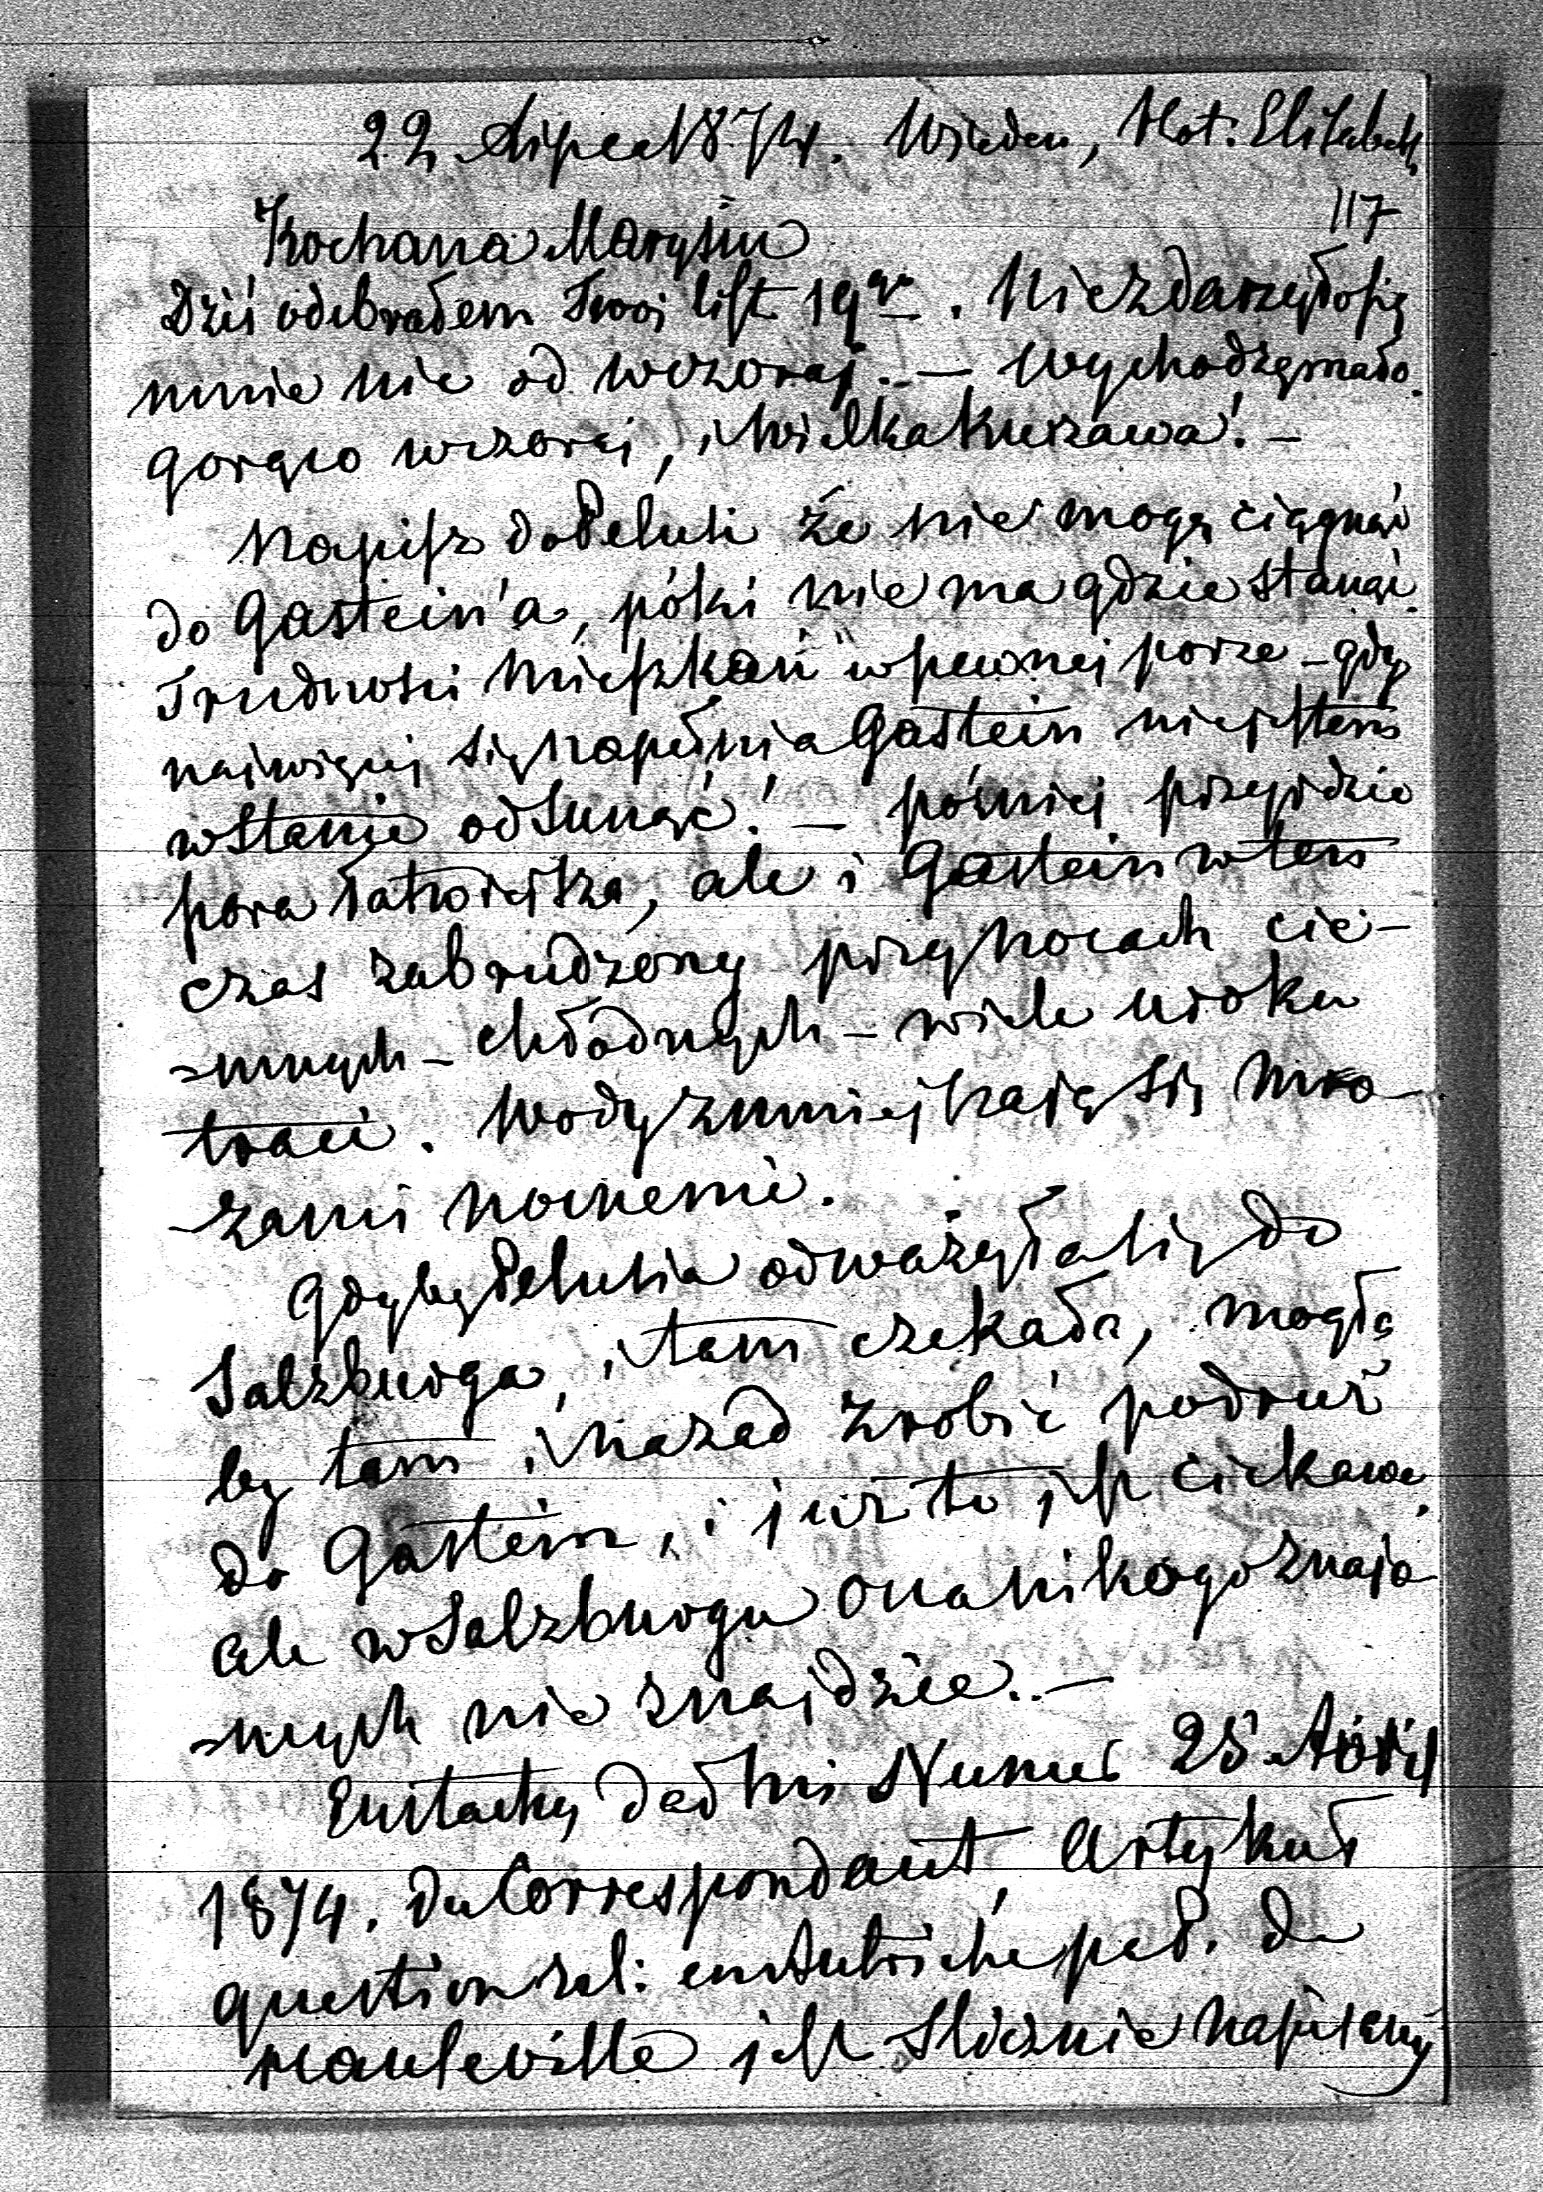 22 Lipca 1874. Wiedeń, Hot. Elisabeth
117
Kochana Marysiu
Dziś odebrałem Twoj list 19go. Nie zdarzyło się
mnie nic od wczoraj. — Wychodzę mało.
gorąco wczoraj, i wielka kurzawa! —
Napisz do Pelusi że nie mogę ciągnąć
do Gastein'a, póki nie ma gdzie stanąć.
Trudności mieszkań w pewnej porze – gdy
najwięcej się napełnia Gastein nie jestem
w stanie odsunąć! — późniéj przyjdzie
pora łatwiejsza, ale i Gastein w ten
czas zabrudzony przy nocach cie-
=mnych – chłodnych – wiele uroku
traci. Wody zmniejszają się mro-
-zami nocnemi.
Gdyby Pelusia odważyła się do
Salzburga, i tam czekała, mogła
by tam i nazad zrobić podruż
do Gastein, i już to jest ciekawe,
ale w Salzburgu ona nikogo znajo-
=mych nie znajdzie. —
Eustachy dał mi Numer 25 Avril
1874. du Correspondant, Artykuł
question rel: en Autriche pad. de
jest slicznie napisany